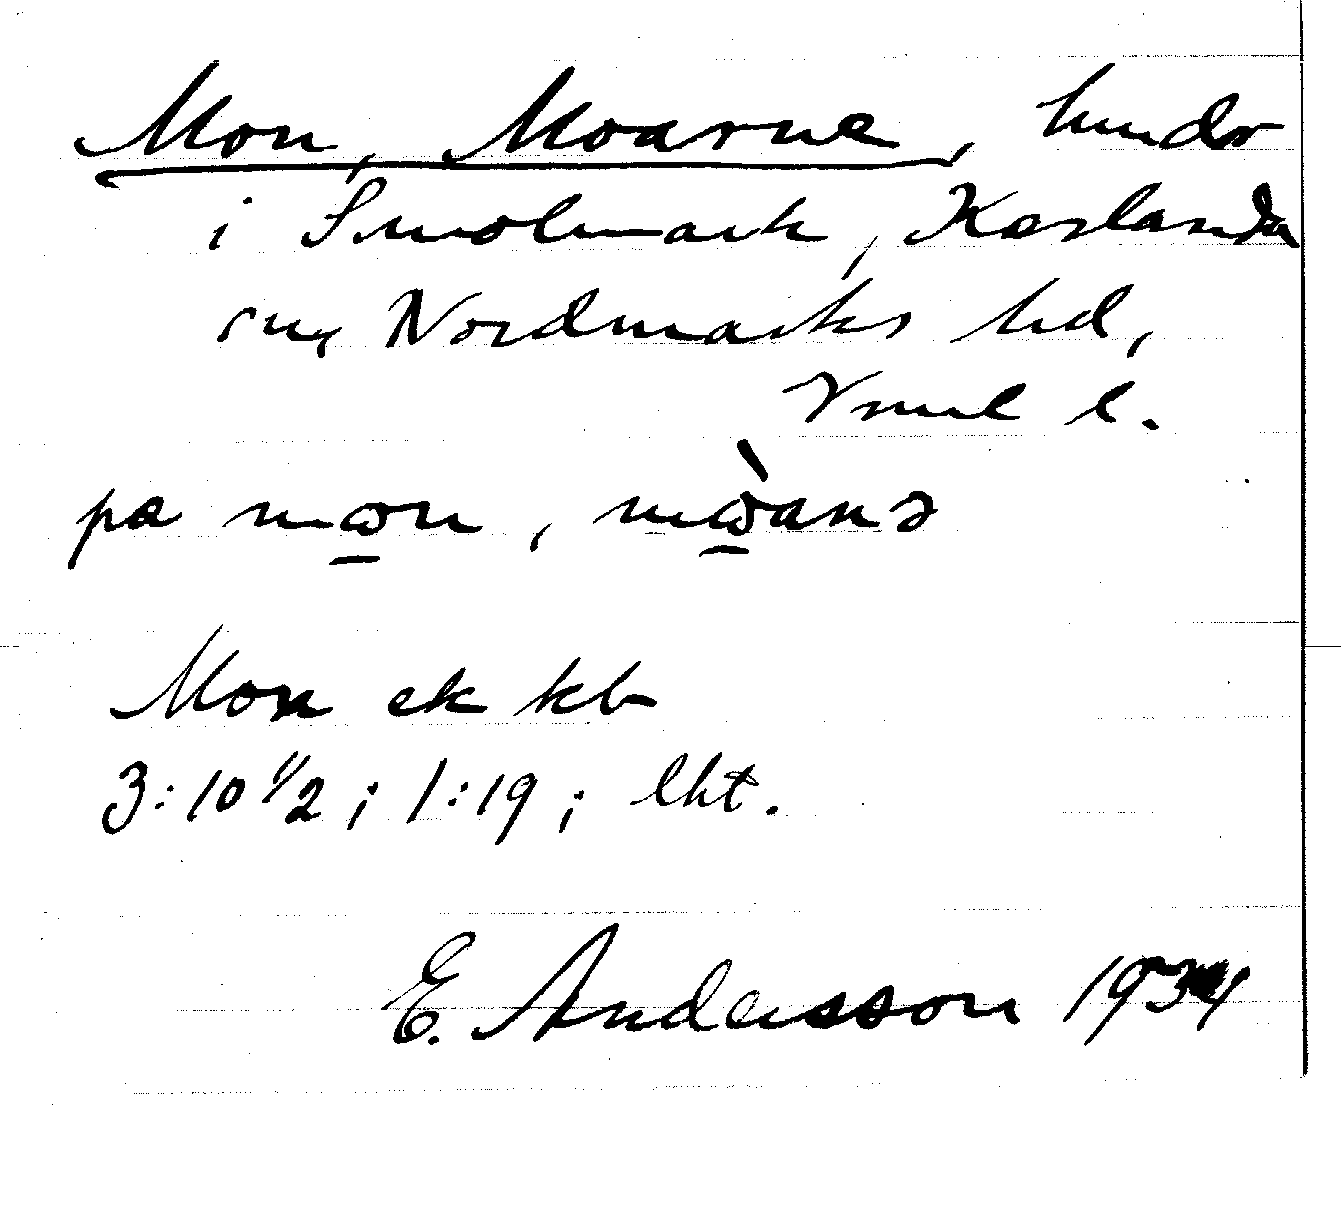 Mon, Moarne, hmdr
i Smolmark, Karlanda
sn, Nordmarks hd,
Vrml l.
på mωn, mὼanə
Mon ek kb
3:10 1/2; 1:19; lht.
E. Andersson 1934